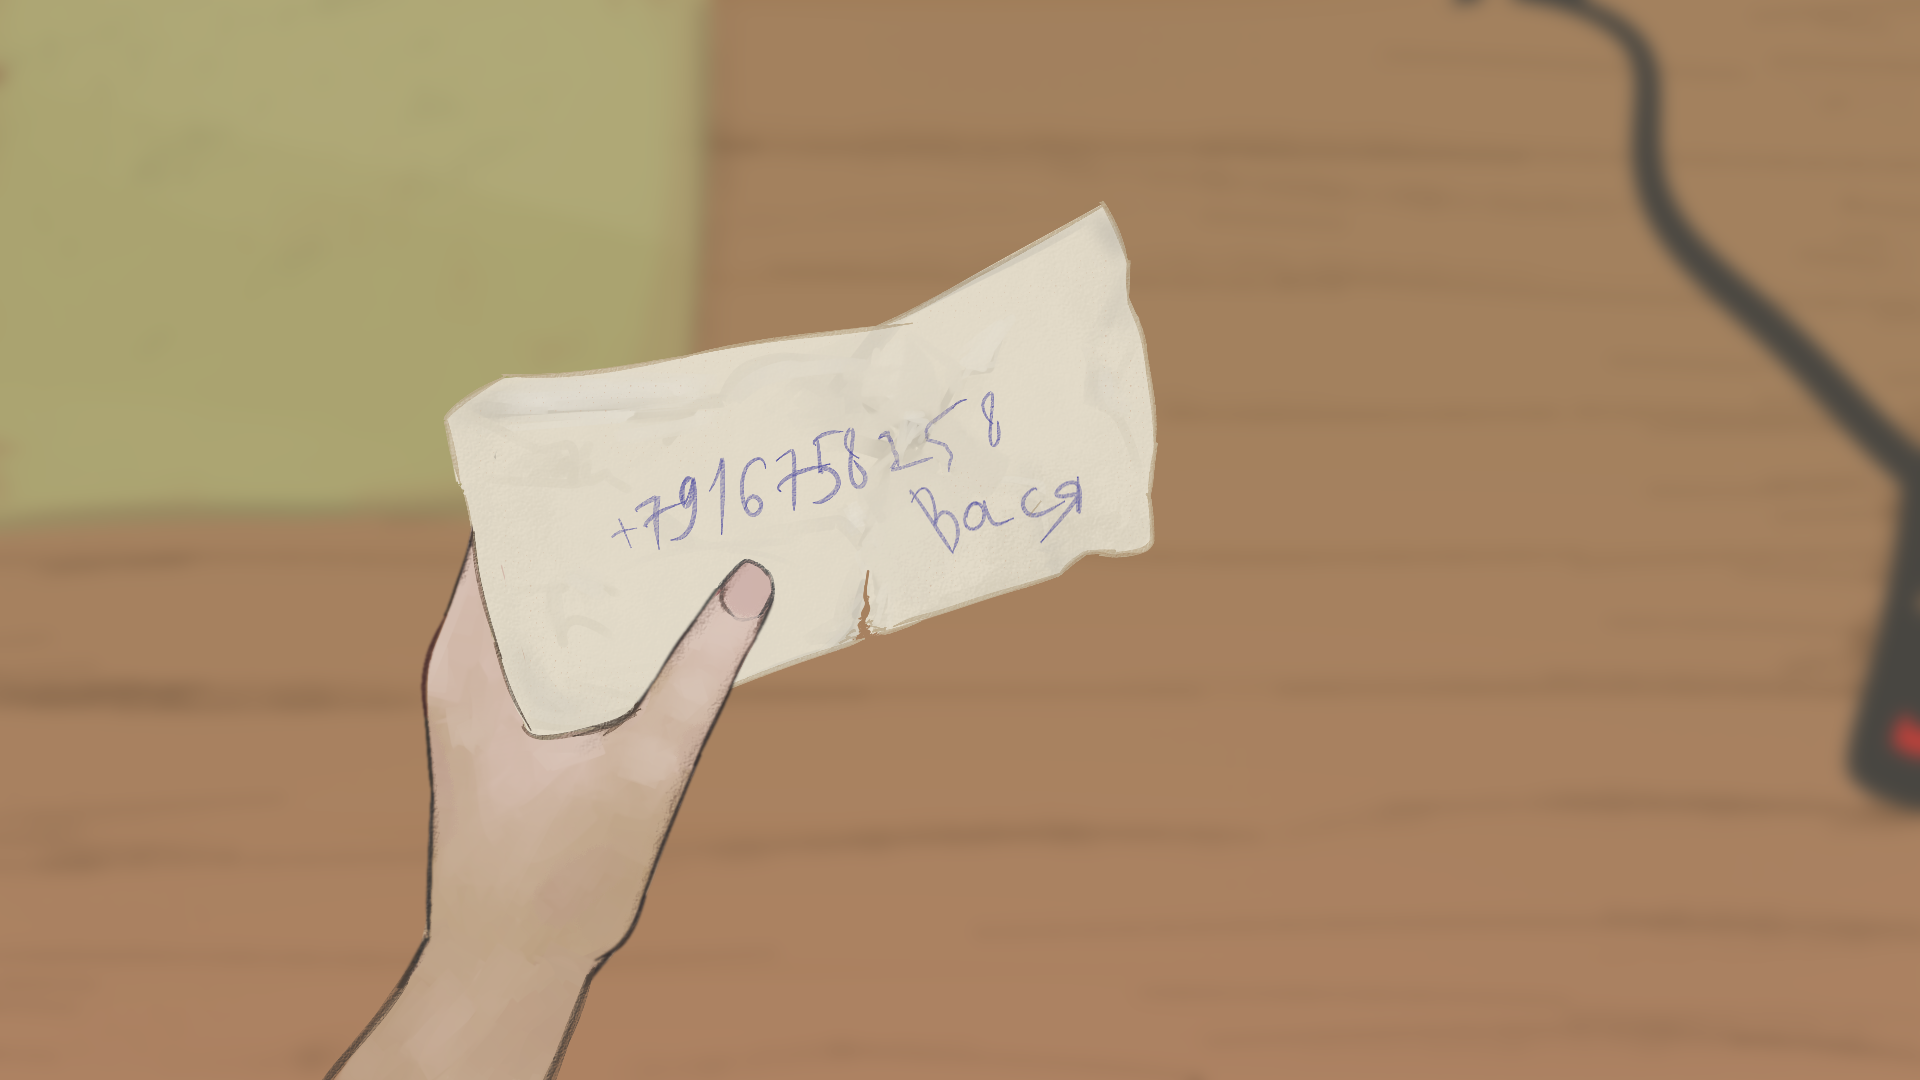 +7916758258
Вася